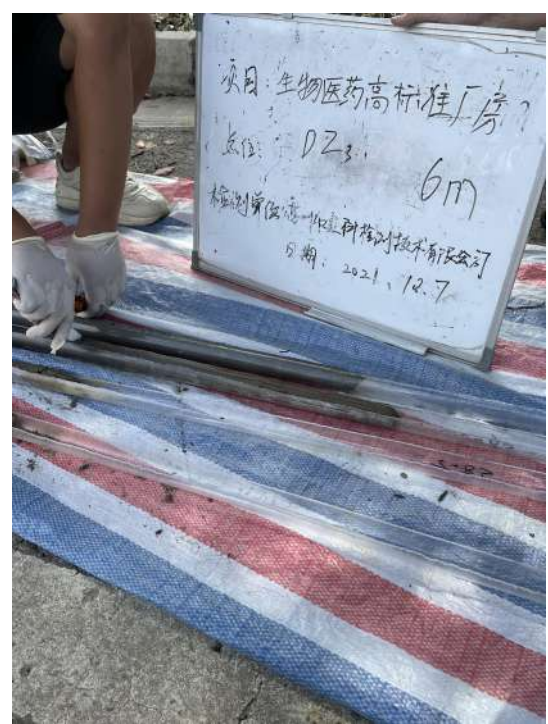 项目:生物医药高标准厂房
点位: DZ3 6m
检测单位: 检测技术有限公司
日期: 2021.12.7